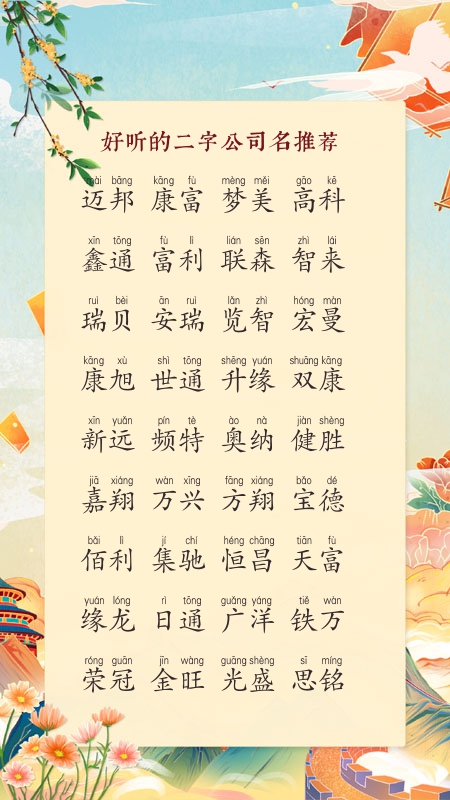 好听的二字公司名推荐
mài bāng kāng fù mèng měi gāo kē
迈邦 康富 梦美 高科
xīn tōng fù lì lián sēn zhì lái
鑫通 富利 联森 智来
ruì bèi ān ruì lǎn zhì hóng màn
瑞贝 安瑞 览智 宏曼
kāng xù shì tōng shēng yuán shuāng kāng
康旭 世通 升缘 双康
xīn yuǎn pín tè ào nà jiàn shèng
新远 频特 奥纳 健胜
jiā xiáng wàn xīng fāng xiáng bǎo dé
嘉翔 万兴 方翔 宝德
bǎi lì jí chí héng chāng tiān fù
佰利 集驰 恒昌 天富
yuán lóng rì tōng guǎng yáng tiě wàn
缘龙 日通 广洋 铁万
róng guān jīn wàng guāng shèng sī míng
荣冠 金旺 光盛 思铭